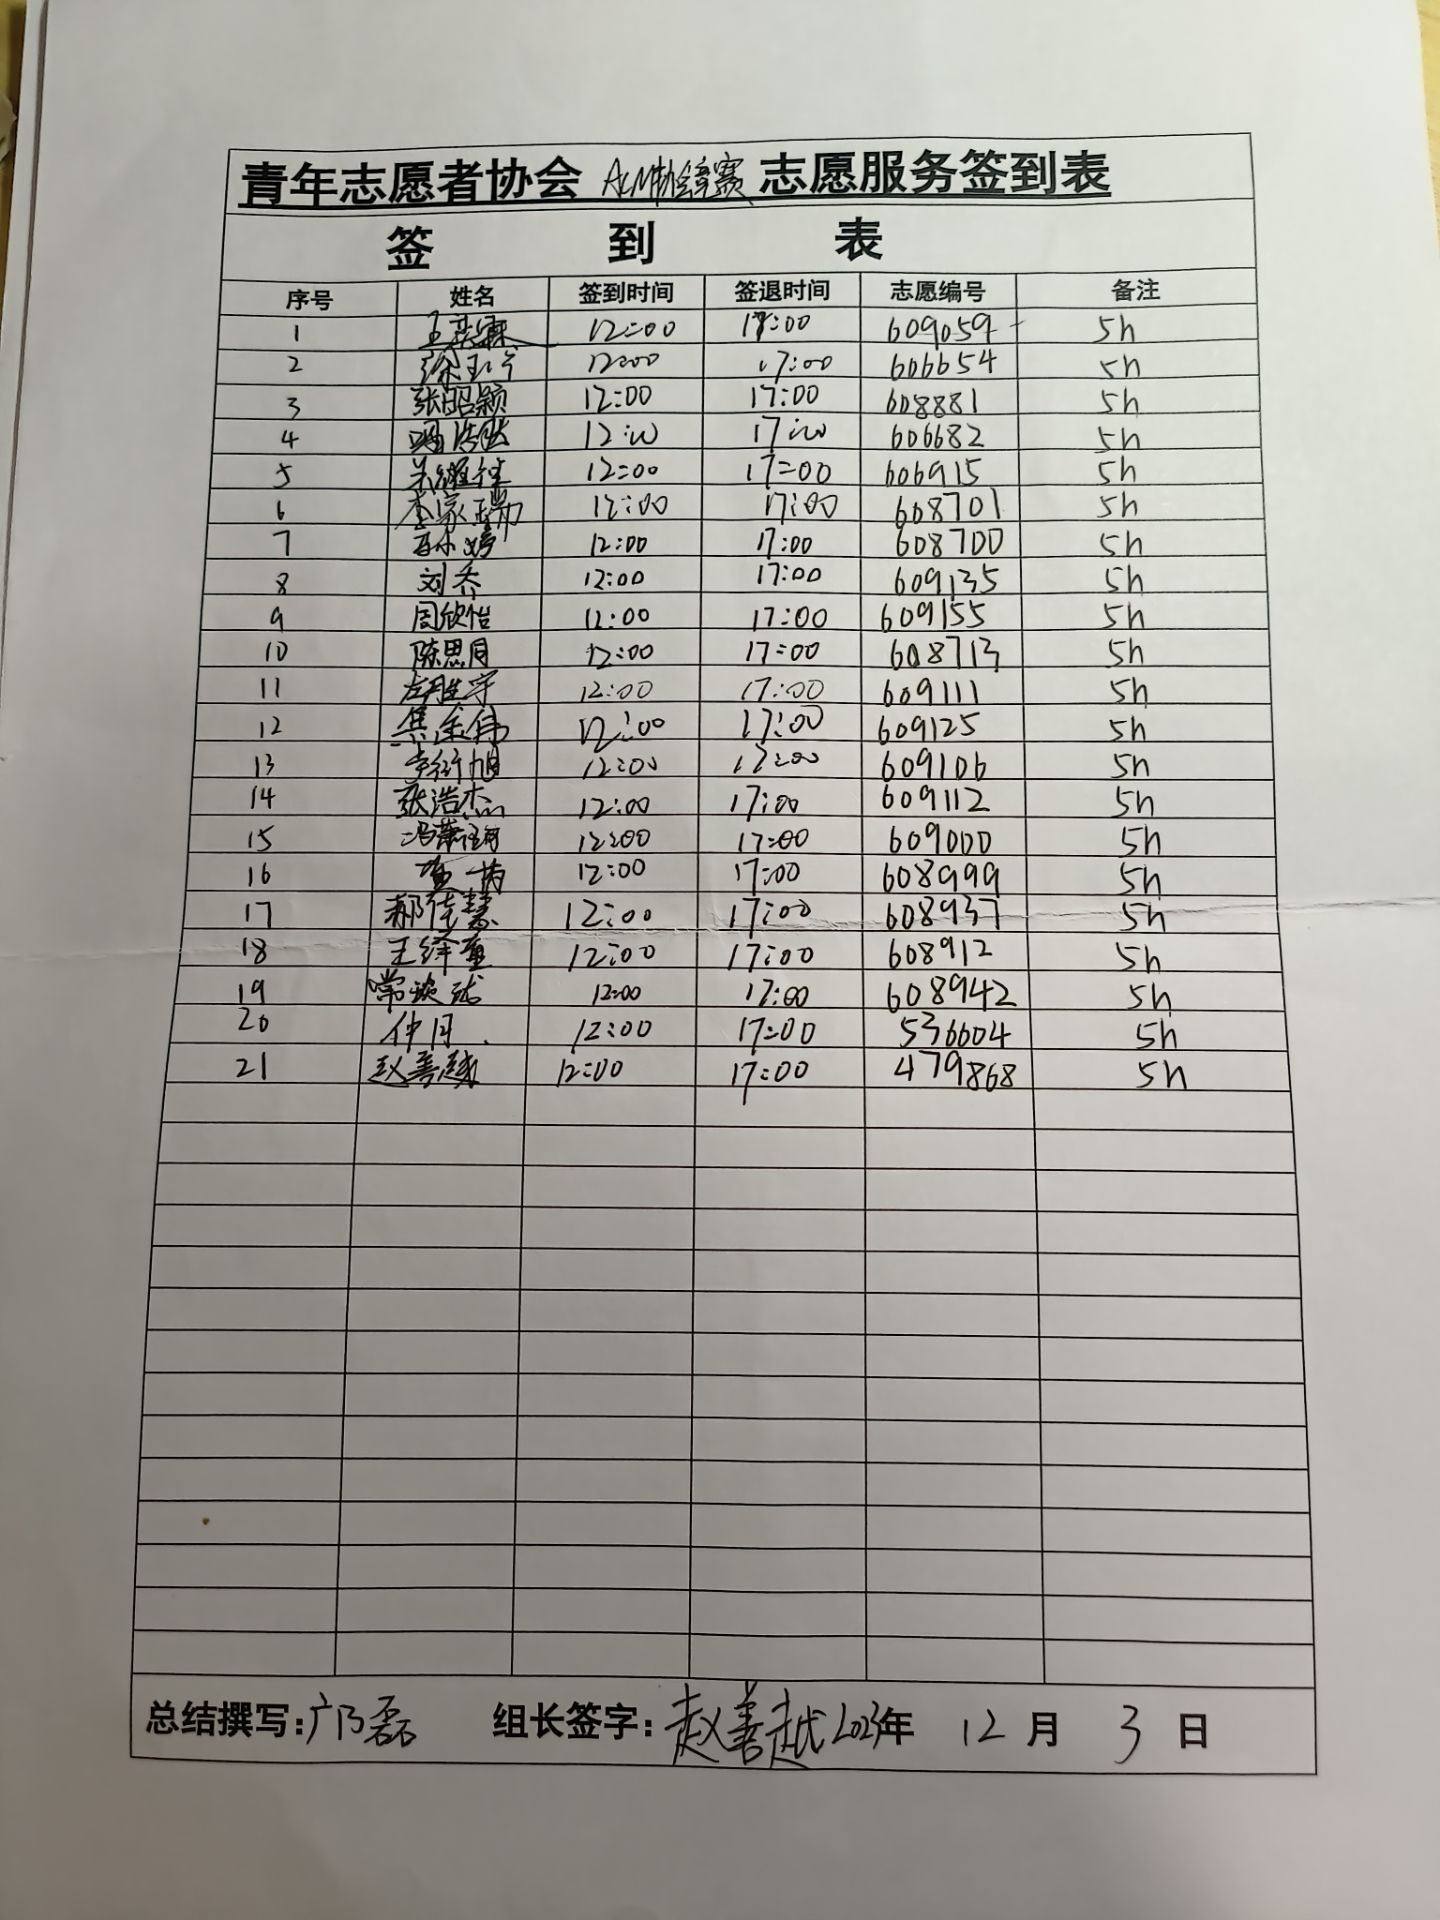 青年志愿者协会 ACM协会竞赛 志愿服务签到表
签 到 表
序号 姓名 签到时间 签退时间 志愿编号 备注
1 12:00 17:00 609059 5h
2 徐 12:00 17:00 606654 5h
3 张昭颖 12:00 17:00 608881 5h
4 冯浩然 12:00 17:00 606682 5h
5 12:00 17:00 606915 5h
6 李家瑞 12:00 17:00 608701 5h
7 12:00 17:00 608700 5h
8 刘乔 12:00 17:00 609135 5h
9 周欣怡 12:00 17:00 609155 5h
10 陈思同 12:00 17:00 608713 5h
11 12:00 17:00 609111 5h
12 12:00 17:00 609125 5h
13 12:00 17:00 609106 5h
14 张浩杰 12:00 17:00 609112 5h
15 12:00 17:00 609000 5h
16 12:00 17:00 608999 5h
17 郝佳慧 12:00 17:00 608937 5h
18 12:00 17:00 608912 5h
19 12:00 17:00 608942 5h
20 仲月 12:00 17:00 536604 5h
21 赵善越 12:00 17:00 479868 5h
总结撰写:邝磊 组长签字:赵善越 2023年 12 月 3 日